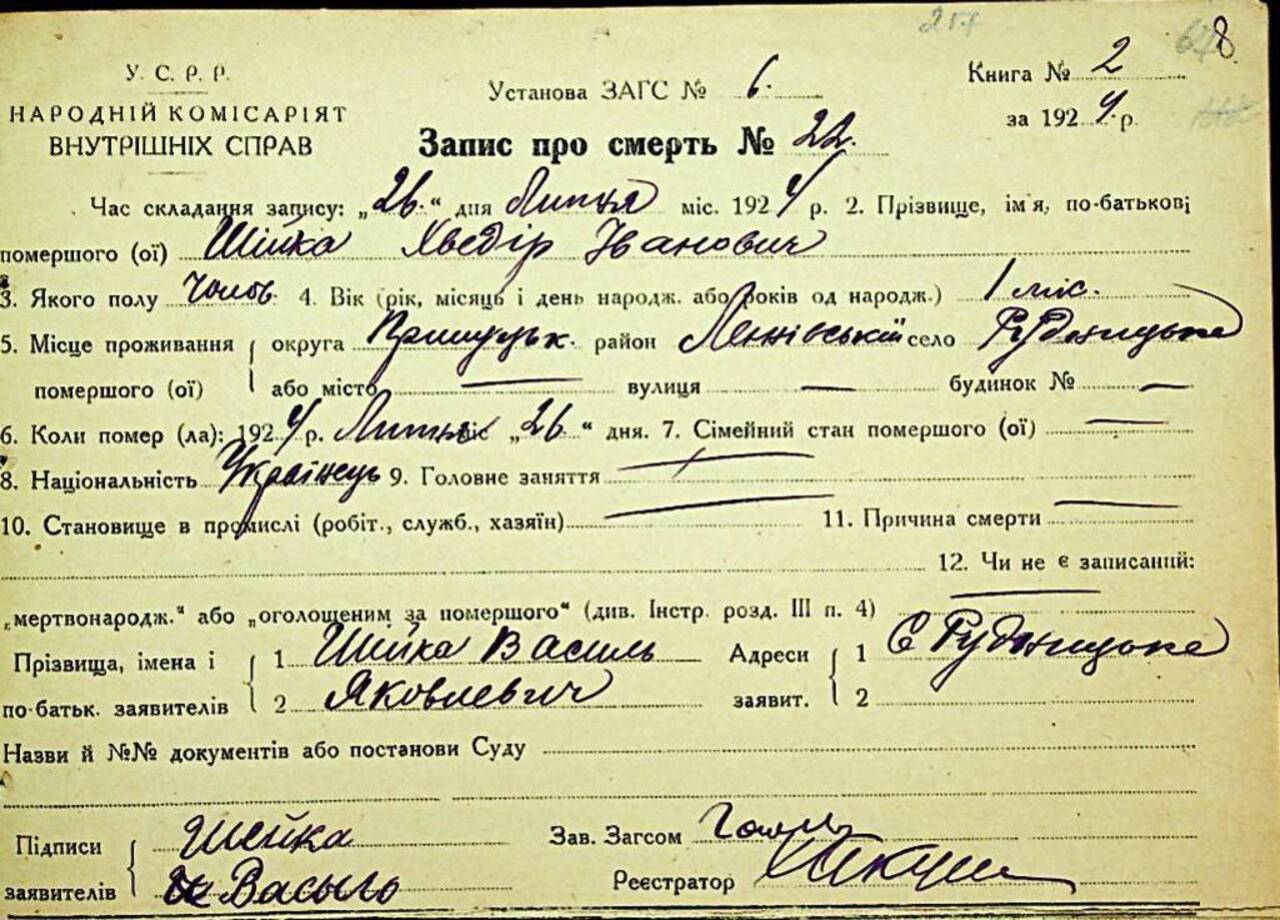 217 8
У. С. Р. Р.
НАРОДНІЙ КОМІСАРІЯТ
ВНУТРІШНІХ СПРАВ
Установа ЗАГС № 6.
Книга № 2
за 1924 р.
Запис про смерть № 22.
Час складання запису: „26.“ дня Липня міс. 1924 р. 2. Прізвище, ім'я, по-батькові
помершого (ої) Шійка Хведір Іванович
3. Якого полу Чолов. 4. Вік (рік, місяць і день народж. або років од народж.) 1 міс.
5. Місце проживання округа Прилуцьк. район село
помершого (ої) або місто — вулиця — будинок № —
6. Коли помер (ла): 1924 р. Липня міс „26.“ дня. 7. Сімейний стан помершого (ої) —
8. Національність Українець 9. Головне заняття —
10. Становище в промислі (робіт., служб., хазяїн) — 11. Причина смерти —
12. Чи не є записаний:
„мертвонародж.“ або „оголошеним за помершого“ (див. Інстр. розд. III п. 4) —
Прізвища, імена і 1 Шейка Василь Адреси 1 С
по-батьк. заявителів 2 Яковлевич заявит. 2
Назви й №№ документів або постанови Суду
Підписи Шейка Зав. Загсом
заявителів Васыль Реєстратор